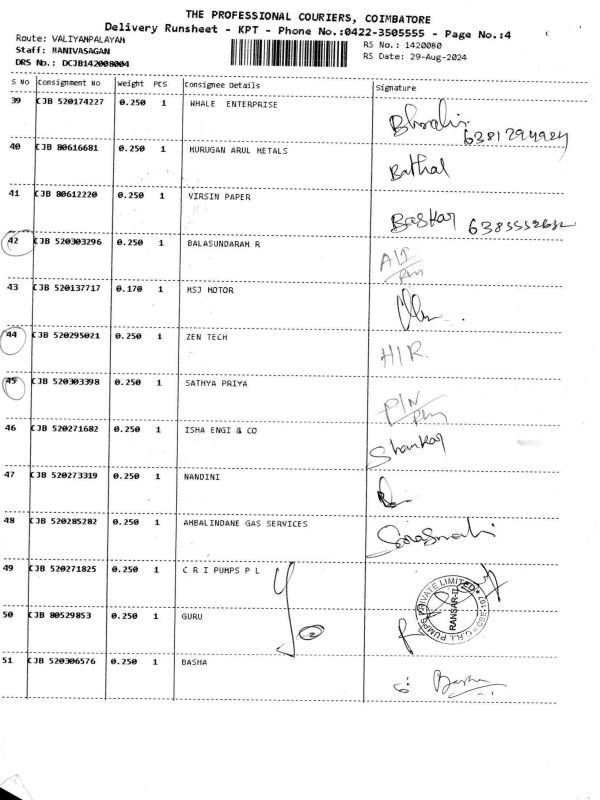 THE PROFESSIONAL COURIERS, COIMBATORE
Delivery Runsheet - KPT - Phone No.:0422-3505555 - Page No.:4
Route: VALIYAMPALAYAM RS No.: 1420080
Staff: MANIVASAGAN RS Date: 29-Aug-2024
DRS No.: DCJB142008004
S No Consignment No Weight PCS Consignee Details Signature
39 CJB 520174227 0.250 1 WHALE ENTERPRISE
6381294984
40 CJB 80616681 0.250 1 MURUGAN ARUL METALS Bathal
41 CJB 80612220 0.250 1 VIRSIN PAPER Baskar
42 CJB 520303296 0.250 1 BALASUNDARAM R
43 CJB 520137717 0.170 1 MSJ MOTOR
44 CJB 520295021 0.250 1 ZEN TECH H/R
45 CJB 520303398 0.250 1 SATHYA PRIYA P/N
46 CJB 520271682 0.250 1 ISHA ENGI & CO Shankar
47 CJB 520273319 0.250 1 NANDINI
48 CJB 520285282 0.250 1 AMBALINDANE GAS SERVICES
49 CJB 520271825 0.250 1 C R I PUMPS P L
C.R.I. PUMPS PRIVATE LIMITED
50 CJB 80529853 0.250 1 GURU 2
51 CJB 520306576 0.250 1 BASHA Basha